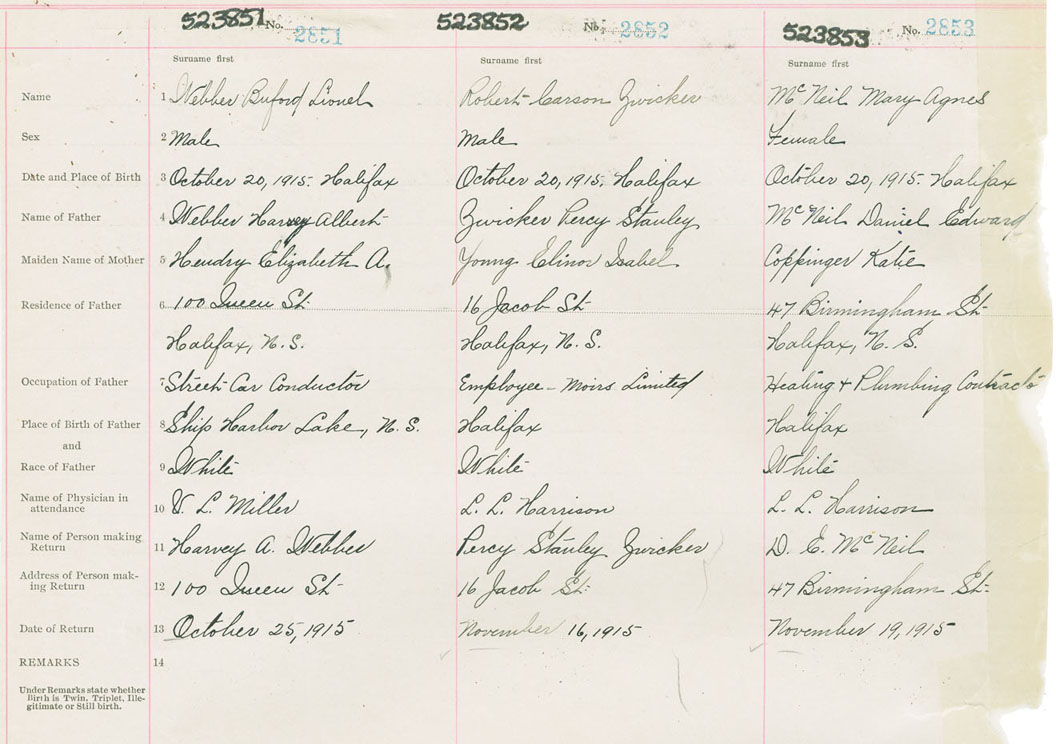 523851 No. 2851 523852 No. 2852 523853 No. 2853
Surname first Surname first Surname first
Name 1 Webber Buford Lionel Robert Carson Zwicker McNeil Mary Agnes
Sex 2 Male Male Female
Date and Place of Birth 3 October 20, 1915. Halifax October 20, 1915. Halifax October 20, 1915. Halifax
Name of Father 4 Webber Harvey Albert Zwicker Percy Stanley McNeil Daniel Edward
Maiden Name of Mother 5 Hendry Elizabeth A. Young Elinor Isabel Coppinger Katie
Residence of Father 6 100 Queen St. 16 Jacob St. 47 Birmingham St.
Halifax, N.S. Halifax, N.S. Halifax, N.S.
Occupation of Father 7 Street Car Conductor Employee - Moirs Limited Heating & Plumbing Contracto
Place of Birth of Father 8 Ship Harbor Lake, N.S. Halifax Halifax
and
Race of Father 9 White White White
Name of Physician in
attendance 10 V. L. Miller L. L. Harrison L. L. Harrison
Name of Person making
Return 11 Harvey A. Webber Percy Stanley Zwicker D. E. McNeil
Address of Person mak-
ing Return 12 100 Queen St. 16 Jacob St. 47 Birmingham St.
Date of Return 13 October 25, 1915 November 16, 1915 November 19, 1915
REMARKS 14
Under Remarks state whether
Birth is Twin, Triplet, Ille-
gitimate or Still birth.